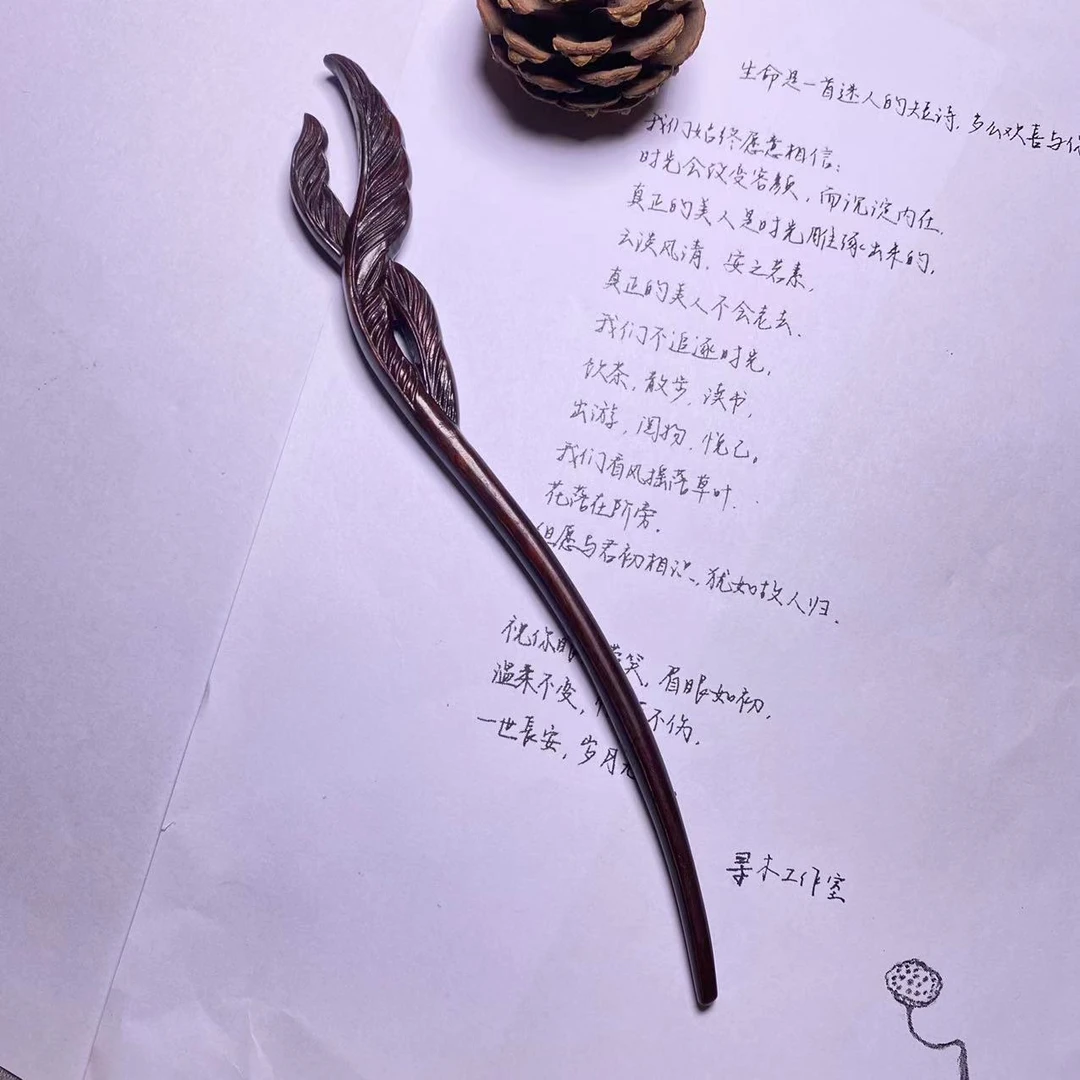 生命是一首迷人的短诗，多么欢喜与你
我们始终愿意相信：
时光会改变容颜，而沉淀内在，
真正的美人是时光雕琢出来的，
云淡风清，安之若素，
真正的美人不会老去，
我们不追逐时光，
饮茶，散步，读书，
出游，阅物，悦己。
我们看风摇落草叶，
花落在阶旁。
但愿与君初相识，犹如故人归.
祝你 笑，眉眼如初，
温柔不变， 不伪，
一世長安，岁月
寻木工作室